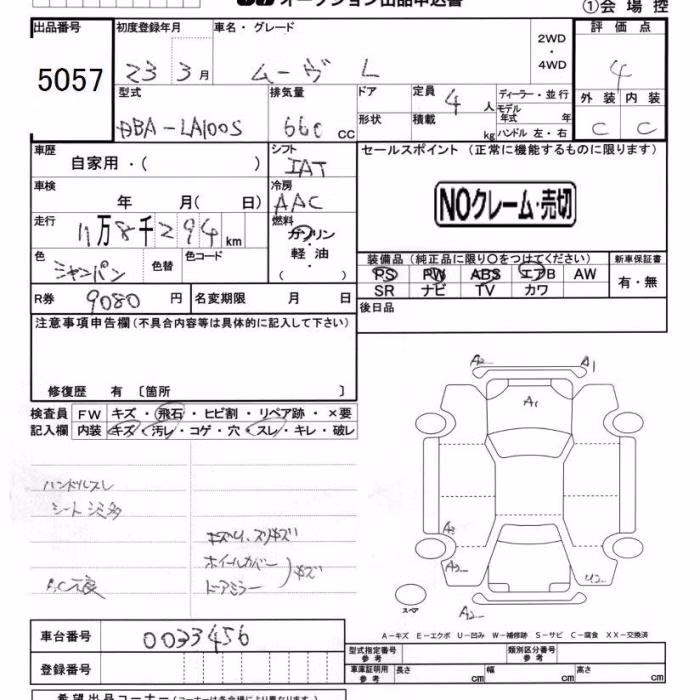 オークション出品申込書
①会場控
出品番号 初度登録年月 車名・グレード 評価点
5057 23 3月 ムーヴ L 2WD・4WD 4
型式 排気量 ドア 定員 4人 ディーラー・並行 外装 内装
DBA-LA100S 660 cc 形状 積載 kg モデル年式 年 ハンドル 左・右 C C
車歴 自家用・( ) シフト IAT セールスポイント (正常に機能するものに限ります)
車検 年 月( 日) 冷房 AAC NOクレーム・売切
走行 11万8千294km 燃料 ガソリン・軽油・( )
色 シャンパン 色替 色コード 装備品 (純正品に限り○をつけてください) 新車保証書
PS PW ABS エアB AW 有・無
SR ナビ TV カワ
R券 9080円 名変期限 月 日 後日品
注意事項申告欄 (不具合内容等は具体的に記入して下さい)
修復歴 有 〔箇所 〕
検査員 FW キズ・飛石・ヒビ割・リペア跡・×要
記入欄 内装 キズ・汚レ・コゲ・穴・スレ・キレ・破レ
A2 A1
A1
ハンドルスレ
シート シミ多
キズハリ、スリキズ
ホイールカバー
ドアミラー
キズ
A.C不良
A3
A2 U2
スペア
A2
A-キズ E-エクボ U-凹み W-補修跡 S-サビ C-腐食 XX-交換済
車台番号 0033456
型式指定番号 参考 類別区分番号 参考
登録番号 車庫証明用 参考 長さ cm 幅 cm 高さ cm
希望出品コーナー